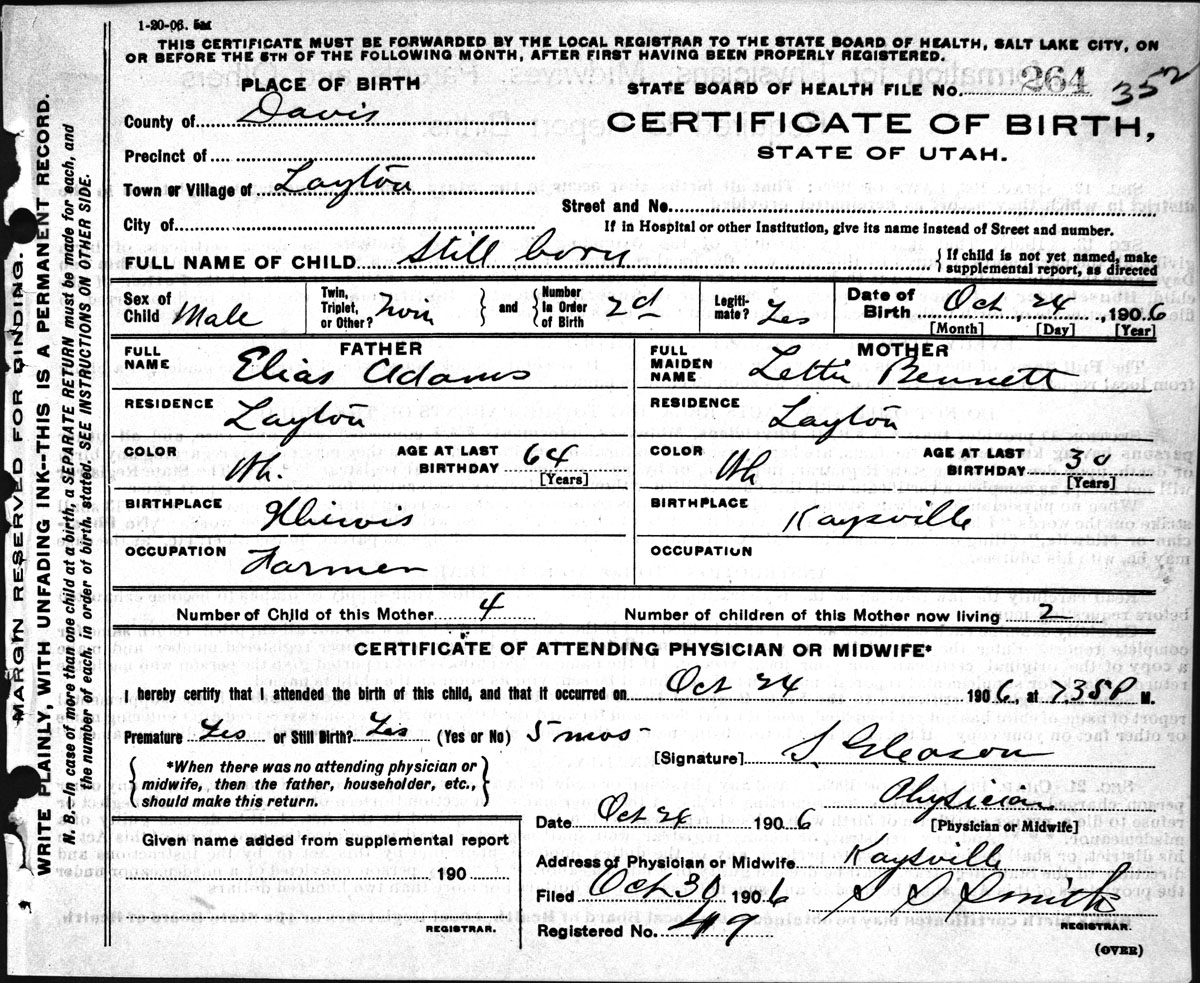 1-20-06. 5M
THIS CERTIFICATE MUST BE FORWARDED BY THE LOCAL REGISTRAR TO THE STATE BOARD OF HEALTH, SALT LAKE CITY, ON
OR BEFORE THE 5TH OF THE FOLLOWING MONTH, AFTER FIRST HAVING BEEN PROPERLY REGISTERED.
PLACE OF BIRTH
STATE BOARD OF HEALTH FILE No. 264 352
County of Davis
CERTIFICATE OF BIRTH,
Precinct of
STATE OF UTAH.
Town or Village of Layton
Street and No.
City of
If in Hospital or other Institution, give its name instead of Street and number.
FULL NAME OF CHILD Still born { If child is not yet named, make supplemental report, as directed
Sex of Child Male
Twin, Triplet, or Other? } and { Number in Order of Birth 2d
Legitimate? Yes
Date of Birth Oct, 24, 1906
[Month] [Day] [Year]
FATHER
FULL NAME Elias Adams
MOTHER
FULL MAIDEN NAME Lettie Bennett
RESIDENCE Layton
RESIDENCE Layton
COLOR Wh. AGE AT LAST BIRTHDAY 64 [Years]
COLOR Wh AGE AT LAST BIRTHDAY 30 [Years]
BIRTHPLACE Illinois
BIRTHPLACE Kaysville
OCCUPATION Farmer
OCCUPATION
Number of Child of this Mother 4 Number of children of this Mother now living 2
CERTIFICATE OF ATTENDING PHYSICIAN OR MIDWIFE*
I hereby certify that I attended the birth of this child, and that it occurred on Oct 24 1906, at 7.35 P M.
Premature Yes or Still Birth? Yes (Yes or No) 5 mos
[Signature] S. Gleason
{ *When there was no attending physician or midwife, then the father, householder, etc., should make this return. }
Physician
[Physician or Midwife]
Date Oct 24 1906
Given name added from supplemental report
190
REGISTRAR.
Address of Physician or Midwife Kaysville
Filed Oct 30 1906 Smith
REGISTRAR.
Registered No. 49
(OVER)
MARGIN RESERVED FOR BINDING.
WRITE PLAINLY, WITH UNFADING INK--THIS IS A PERMANENT RECORD.
N. B.--In case of more than one child at a birth, a SEPARATE RETURN must be made for each, and
the number of each, in order of birth, stated. SEE INSTRUCTIONS ON OTHER SIDE.